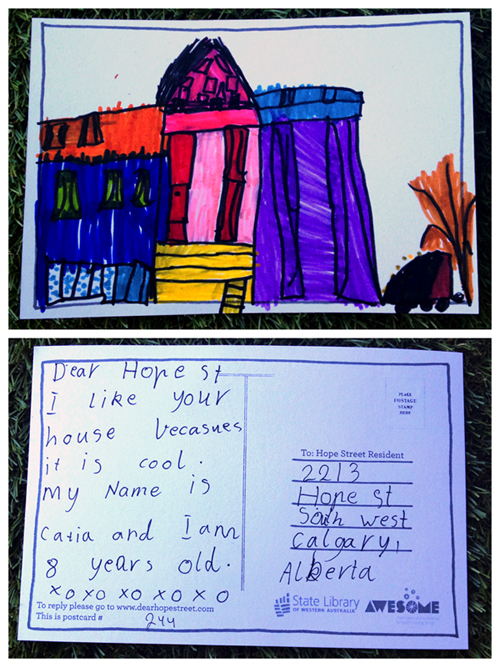 Dear Hope st
I like your
house becasues
it is cool.
my Name is
Catia and I am
8 years old.
xo xo xo xo x o
To reply please go to www.dearhopestreet.com
This is postcard # 244
PLACE
POSTAGE
STAMP
HERE
To: Hope Street Resident
2213
Hope st
South west
calgary,
Alberta
State Library
OF WESTERN AUSTRALIA
AWESOME